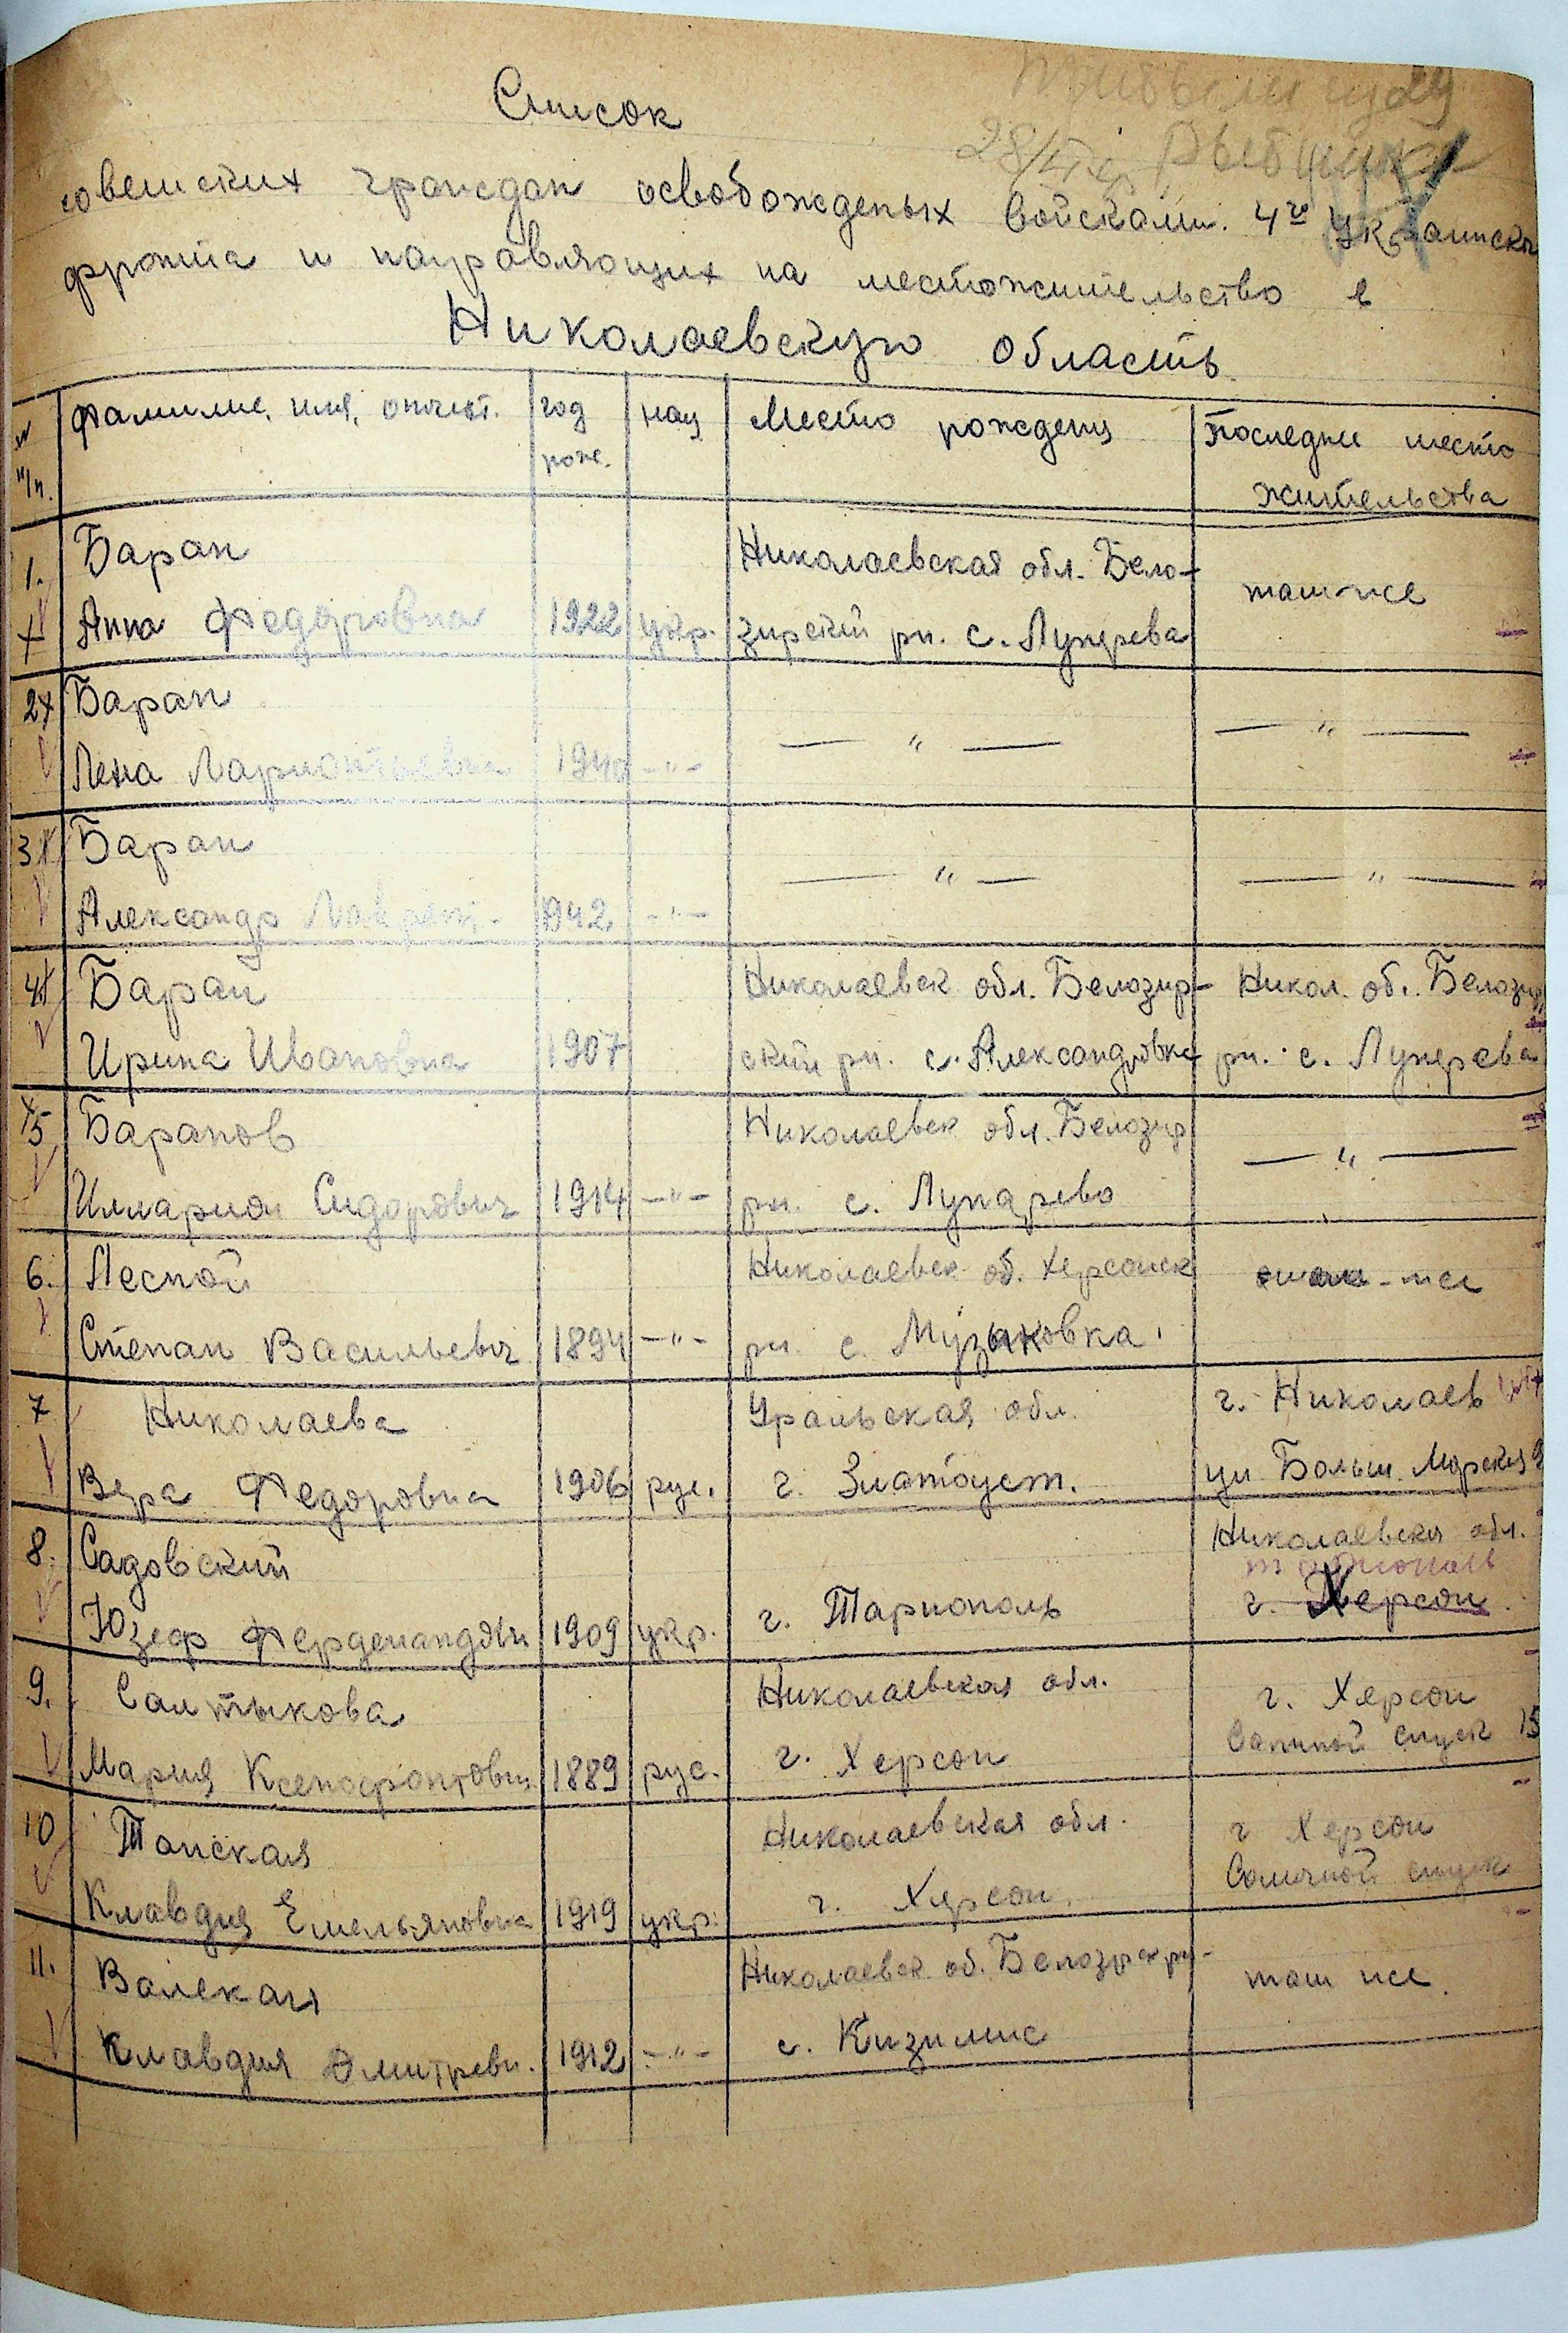 Список
советских граждан освобожденых войсками 4го Украинск
фронта и направляющих на местожительство в
Николаевскую область
№ п/п. Фамилие, имя, отчест. год рож. нац Место рождения Последнее место жительства
1. Баран Николаевская обл. Бело- там-же
Анна Федоровна 1922 укр. зирский рн. с. Луперева
2 Баран — " — — " —
Лена 1940 -"-
3 Баран — " — — " —
Александр 1942 -"-
4 Баран Николаевск обл. Белозир- Никол. об. Белозир
Ирина Ивановна 1907 ский рн. с. Александровка рн. с. Луперева
5 Баранов Николаевск обл. Белозир — " —
Илларион Сидорович 1914 -"- рн. с. Лупарево
6. Лесной Николаевск об. Херсонск -же
Степан Васильевич 1894 -"- рн. с. Музыковка
7 Николаева Уральская обл. г. Николаев
Вера Федоровна 1906 рус. г. Златоуст. ул. Больш. Морская 9
8. Садовский Николаевская обл.
Юзеф Ферденандович 1909 укр. г. Тарнополь г. Херсон
9. Салтыкова Николаевская обл. г. Херсон
Мария Ксенофонтовн 1889 рус. г. Херсон спуск 15
10 Танская Николаевская обл. г Херсон
Клавдия Емельяновна 1919 укр. г. Херсон. спуск
11. Николаевск об. там же.
Клавдия Дмитревн. 1912 -"- с. Кизимис